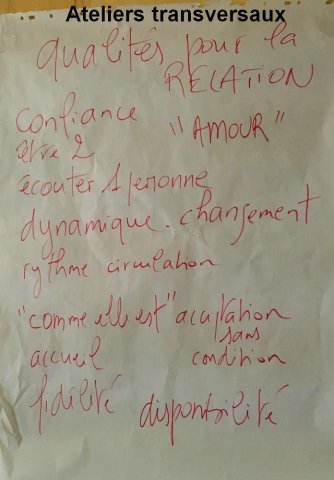 Ateliers transversaux
qualités pour la
RELATION
confiance
"AMOUR"
être 2
écouter 1 personne
dynamique. changement
rythme circulation
"comme elle est" acceptation
sans
accueil condition
fidélité disponibilité